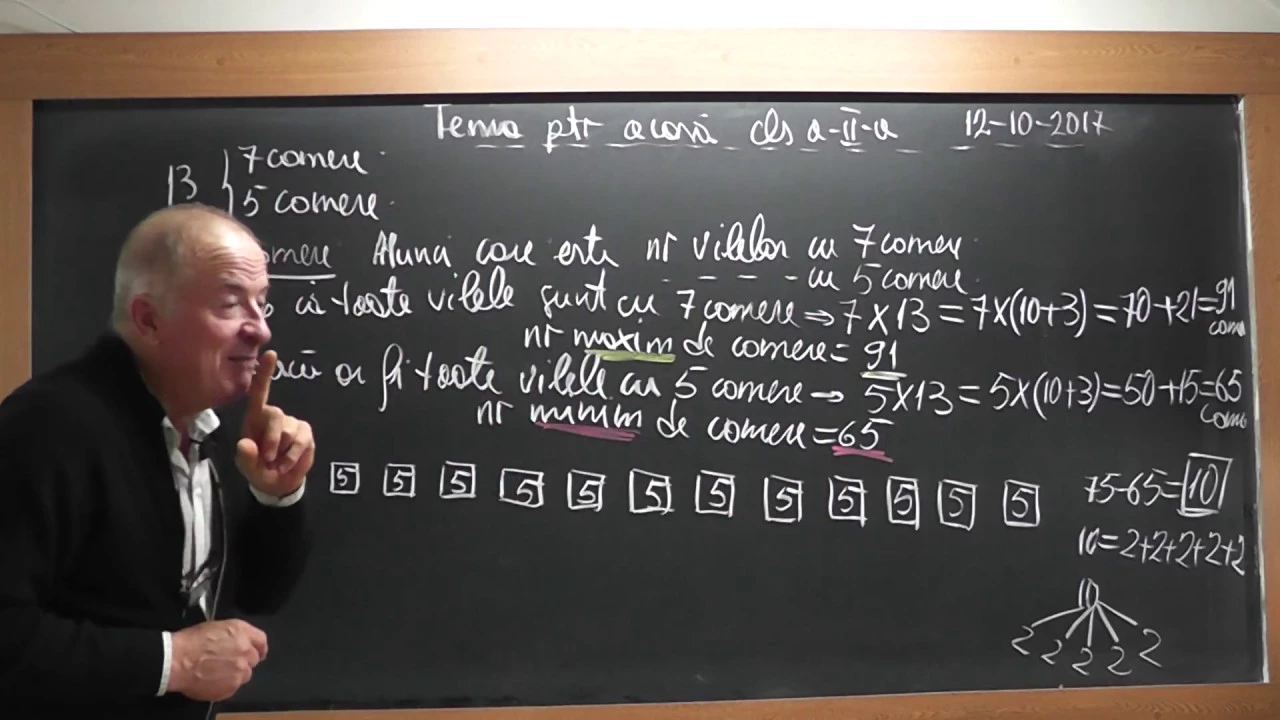 Tema ptr acasă cls a-II-a 12-10-2017
13 7 camere
5 camere
Atunci care este nr vilelor cu 7 camere
- - - - cu 5 camere
că toate vilele sunt cu 7 camere ⇒ 7×13 = 7×(10+3) = 70+21=91
nr maxim de camere = 91
ar fi toate vilele cu 5 camere → 5×13 = 5×(10+3)=50+15=65
nr minim de camere =65
5 5 5 5 5 5 5 5 5 5 5 5
75-65=10
10=2+2+2+2+2
10
2 2 2 2 2